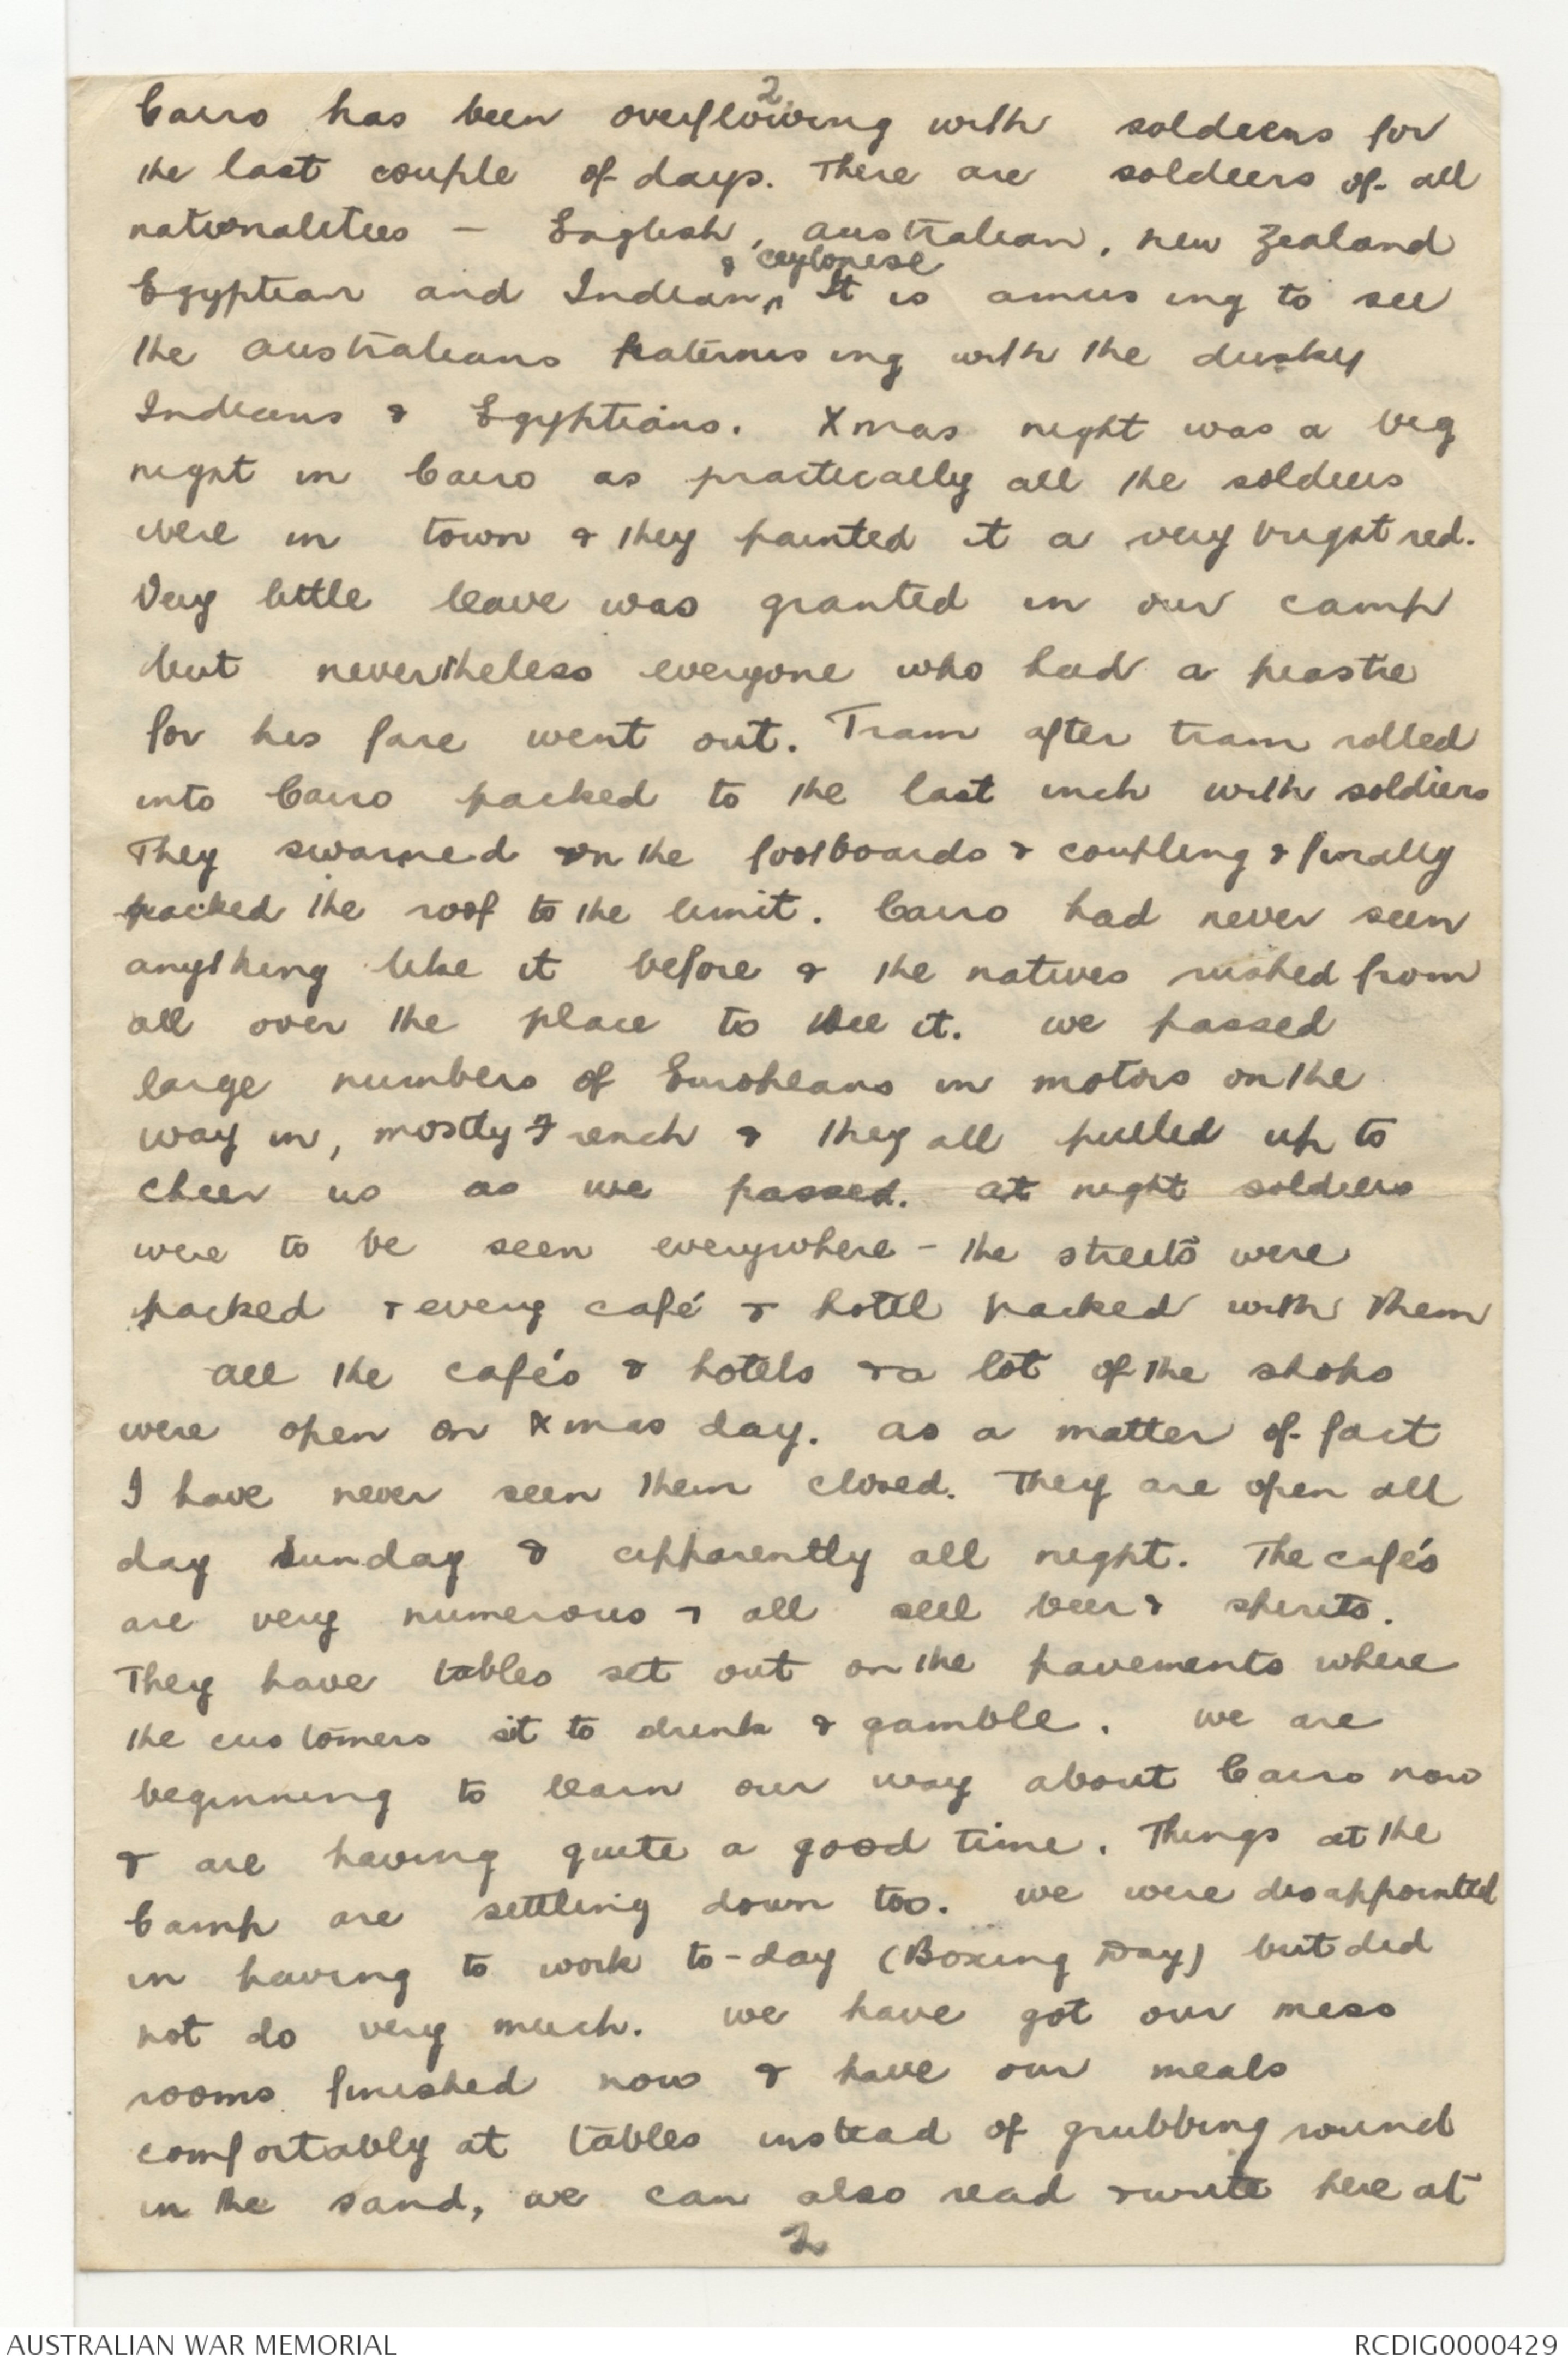 2.
Cairo has been overflowing with soldiers for
the last couple of days. There are soldiers of all
nationalities - English, Australian, New Zealand
& Ceylonese
Egyptian and Indian ^ It is amusing to see
the Australians fraternising with the dusky
Indians & Egyptians. Xmas night was a big
night in Cairo as practically all the soldiers
were in town & they painted it a very bright red.
Very little leave was granted in our camp
but nevertheless everyone who had a piastre
for his fare went out. Tram after tram rolled
into Cairo packed to the last inch with soldiers
They swarmed on the footboards & coupling & finally
packed the roof to the limit. Cairo had never seen
anything like it before & the natives rushed from
all over the place to see it. We passed
large numbers of Europeans in motors on the
way in, mostly French & they all pulled up to
cheer us as we passed. At night soldiers
were to be seen everywhere - the streets were
packed & every café & hotel packed with them
All the cafés & hotels & a lot of the shops
were open on Xmas day. As a matter of fact
I have never seen them closed. They are open all
day Sunday & apparently all night. The cafés
are very numerous & all sell beer & spirits.
They have tables set out on the pavements where
the customers sit to drink & gamble. We are
beginning to learn our way about Cairo now
& are having quite a good time. Things at the
Camp are settling down too. We were disappointed
in having to work to-day (Boxing Day) but did
not do very much. We have got our mess
rooms finished now & have our meals
comfortably at tables instead of grubbing round
in the sand, we can also read & write here at
2
AUSTRALIAN WAR MEMORIAL
RCDIG0000429